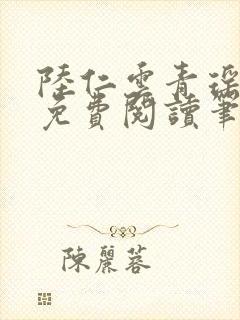 陸仁雲青瑤
免費閱讀筆
陳麗蓉